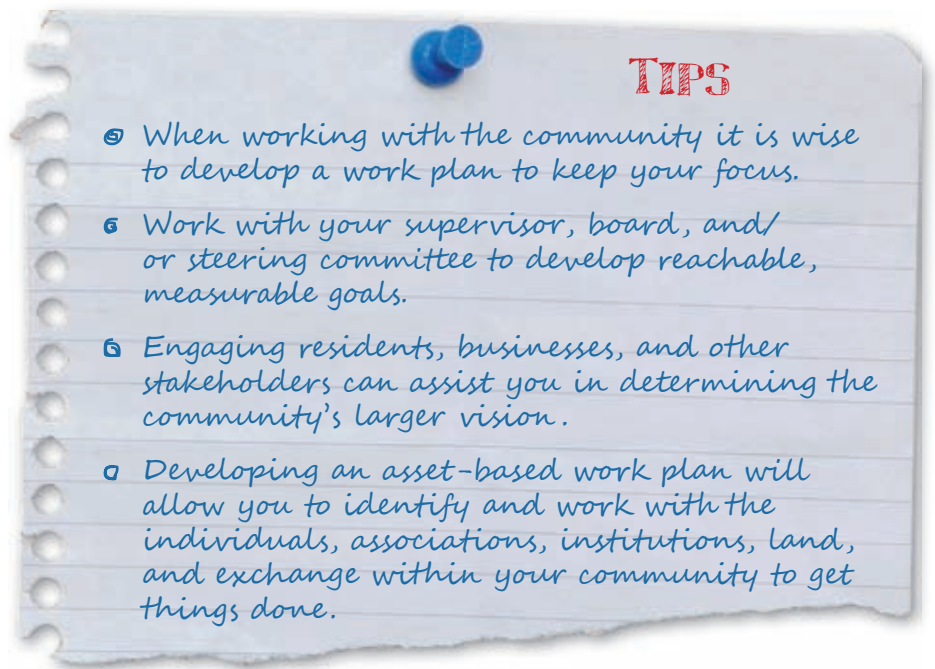 TIPS
When working with the community it is wise
to develop a work plan to keep your focus.
Work with your supervisor, board, and/
or steering committee to develop reachable,
measurable goals.
Engaging residents, businesses, and other
stakeholders can assist you in determining the
community's larger vision.
Developing an asset-based work plan will
allow you to identify and work with the
individuals, associations, institutions, land,
and exchange within your community to get
things done.